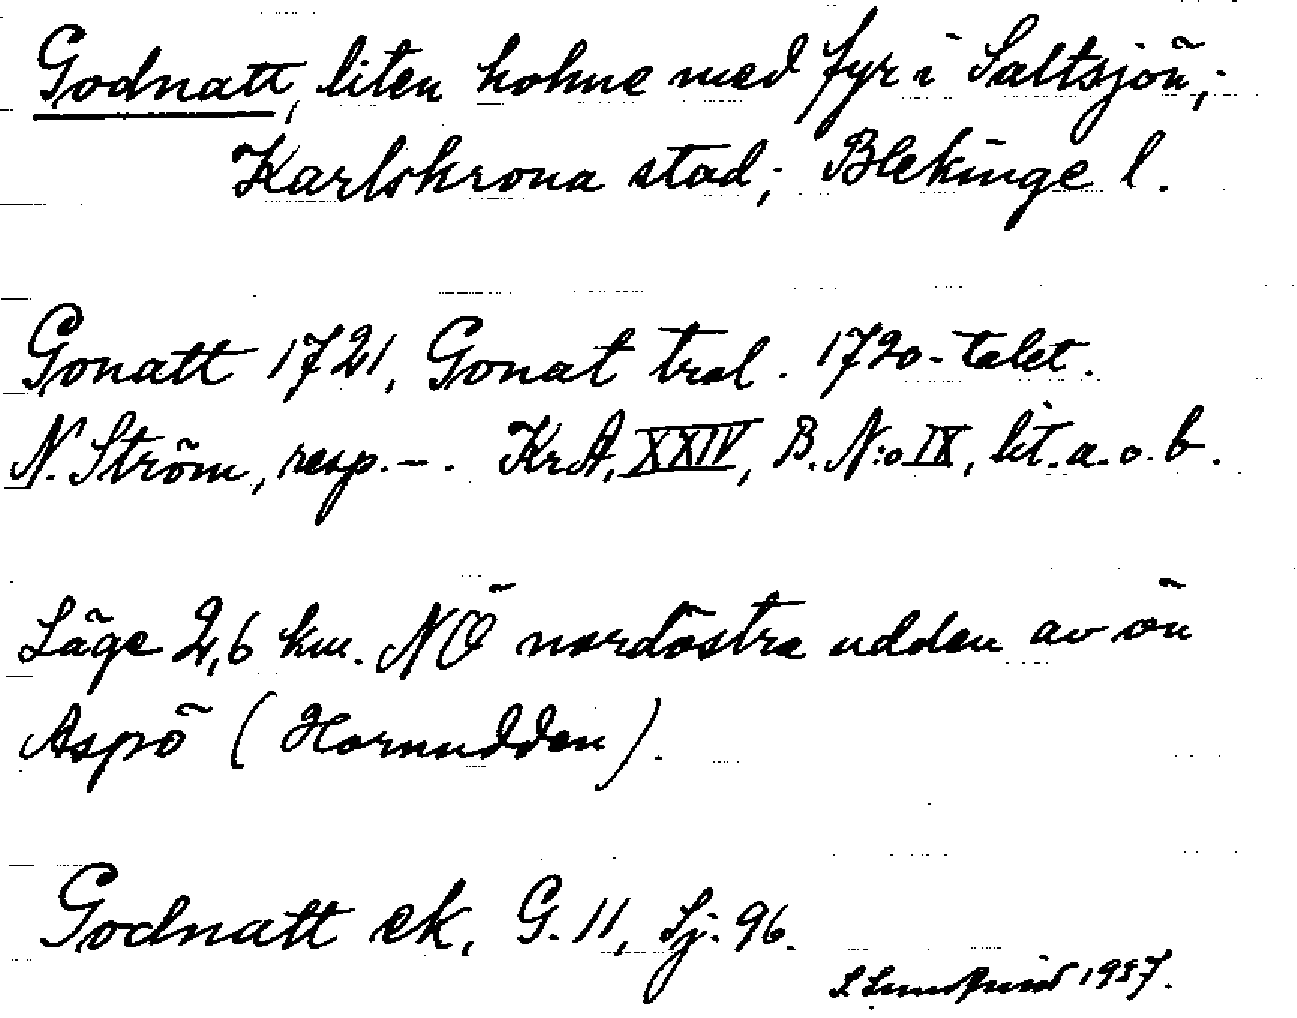 Godnatt, liten holme med fyr i Saltsjön;
Karlskrona stad; Blekinge l.
Gonatt 1721, Gonat trol. 1720-talet.
N. Ström, resp. -. KrA, XXIV, B. N:o IX, lit. a. o. b.
Läge 2,6 km. NÖ nordöstra udden av ön
Aspö (Hornudden).
Godnatt ek, G. 11, Sj. 96.
1957.